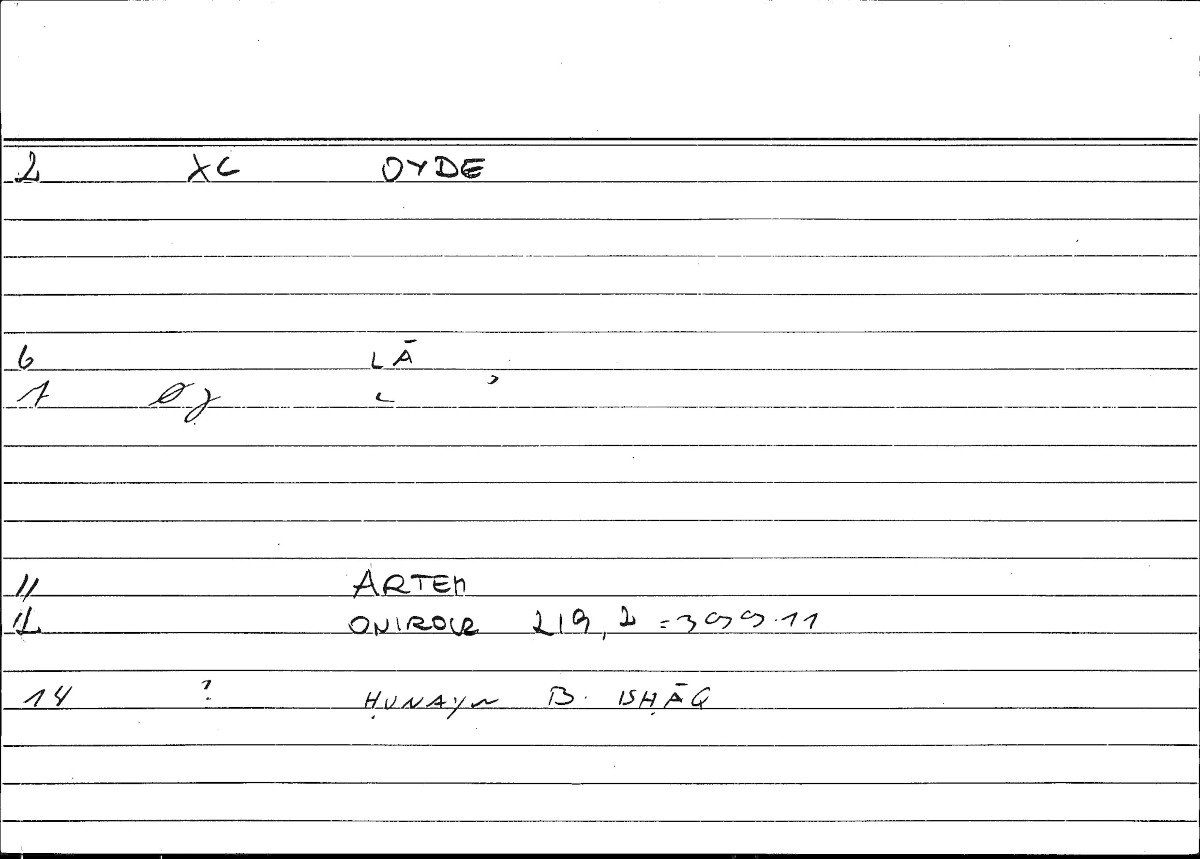 2 XC OYDE
6 LĀ
7 Øj ʿ ʾ
11 ARTEM
12 ONIROCR 219,2 = 399.11
14 ? ḤUNAYN B. ISḤĀQ